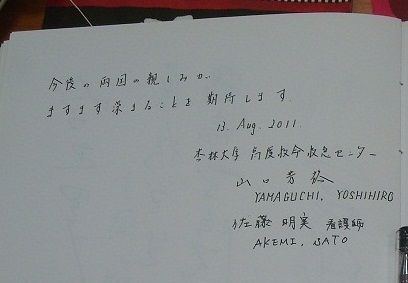 今後の両国の親しみが
ますます深まることを期所します.
13. Aug. 2011
杏林大学 高度救命救急センター
山口芳裕
YAMAGUCHI, YOSHIHIRO
佐藤 明実 看護師
AKEMI, SATO